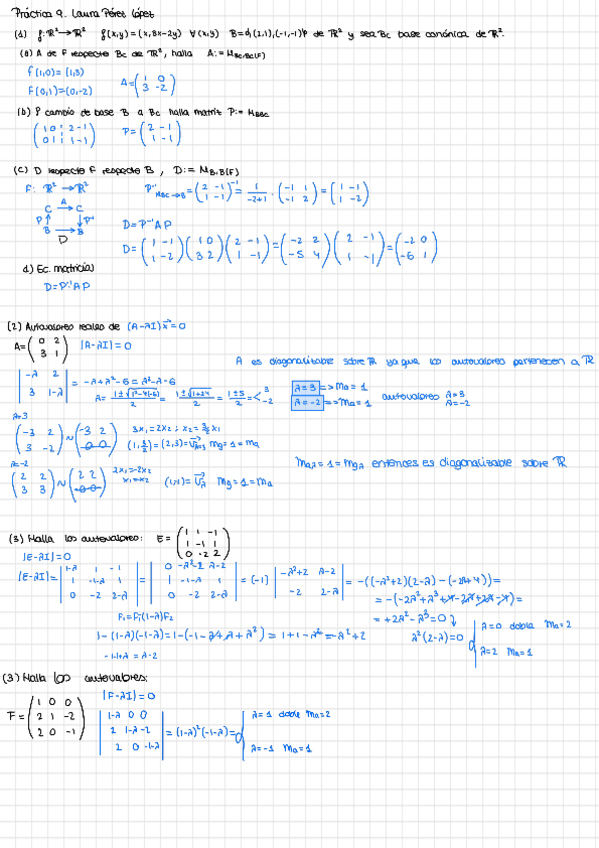 Práctica 9. Laura Pérez López
(1) f: ℝ² → ℝ² f(x,y) = (x, 3x-2y) ∀(x,y) B = {(2,1),(-1,-1)} de ℝ² y sea Bc base canónica de ℝ².
(a) A de F respecto Bc de ℝ², halla A := M_Bc,Bc(F)
f(1,0) = (1,3)
F(0,1) = (0,-2)
A = (1 0
3 -2)
(b) P cambio de base B a Bc halla matriz P := M_BBC
(1 0 2 -1
0 1 1 -1)
P = (2 -1
1 -1)
(c) D respecto F respecto B, D := M_B,B(F)
F: ℝ² → ℝ²
C A→ C
P↑ ↓P⁻¹
B → B
D
P⁻¹ M_BC→B = (2 -1
1 -1)⁻¹ = 1/-2+1 · (-1 1
-1 2) = (1 -1
1 -2)
D = P⁻¹AP
D = (1 -1
1 -2) (1 0
3 2) (2 -1
1 -1) = (-2 2
-5 4) (2 -1
1 -1) = (-2 0
-6 1)
d) Ec. matricial
D = P⁻¹AP
(2) Autovalores reales de (A-λI)x⃗ = 0
A = (0 2
3 1) |A-λI| = 0
A es diagonalizable sobre ℝ ya que los autovalores pertenecen a ℝ
|-λ 2
3 1-λ| = -λ+λ²-6 = λ²-λ-6
λ = 1±√(1²-4(-6))/2 = 1±√(1+24)/2 = 1±5/2 = < 3
-2
λ=3 => Ma = 1
λ=-2 => Ma = 1
autovalores λ=3
λ=-2
λ=3
(-3 2
3 -2) ~ (-3 2
0 0)
3x₁=2x₂; x₂=3/2x₁
(1, 3/2) = (2,3) = V⃗λ=3 Mg=1=ma
λ=-2
(2 2
3 3) ~ (2 2
0 0)
2x₁=-2x₂
x₁=-x₂
(1,-1) = V⃗λ Mg=1=Ma
Maλ=1=Mgλ entonces es diagonalizable sobre ℝ
(3) Halla los autovalores: E = (1 1 -1
1 -1 1
0 -2 2)
|E-λI| = 0
|E-λI| = |1-λ 1 -1
1 -1-λ 1
0 -2 2-λ| = |0 -λ²+2 λ-2
1 -1-λ 1
0 -2 2-λ| = (-1) |-λ²+2 λ-2
-2 2-λ| = -((-λ²+2)(2-λ)-(-2λ+4)) =
= -(-2λ²+λ³+4-2λ+2λ-4) =
= +2λ²-λ³=0
λ²(2-λ)=0
λ=0 doble Ma=2
λ=2 Ma=1
F₁=F₁(1-λ)F₂
1-(1-λ)(-1-λ) = 1-(-1-λ+λ+λ²) = 1+1-λ² = -λ²+2
-1-1+λ = λ-2
(3) Halla los autovalores:
F = (1 0 0
2 1 -2
2 0 -1)
|F-λI| = 0
|1-λ 0 0
2 1-λ -2
2 0 -1-λ| = (1-λ)²(-1-λ)=0
λ=1 doble Ma=2
λ=-1 Ma=1